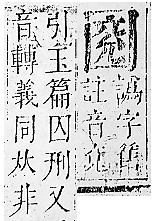 譌字舊
註音
引玉篇囚刑又
音轉義同从非